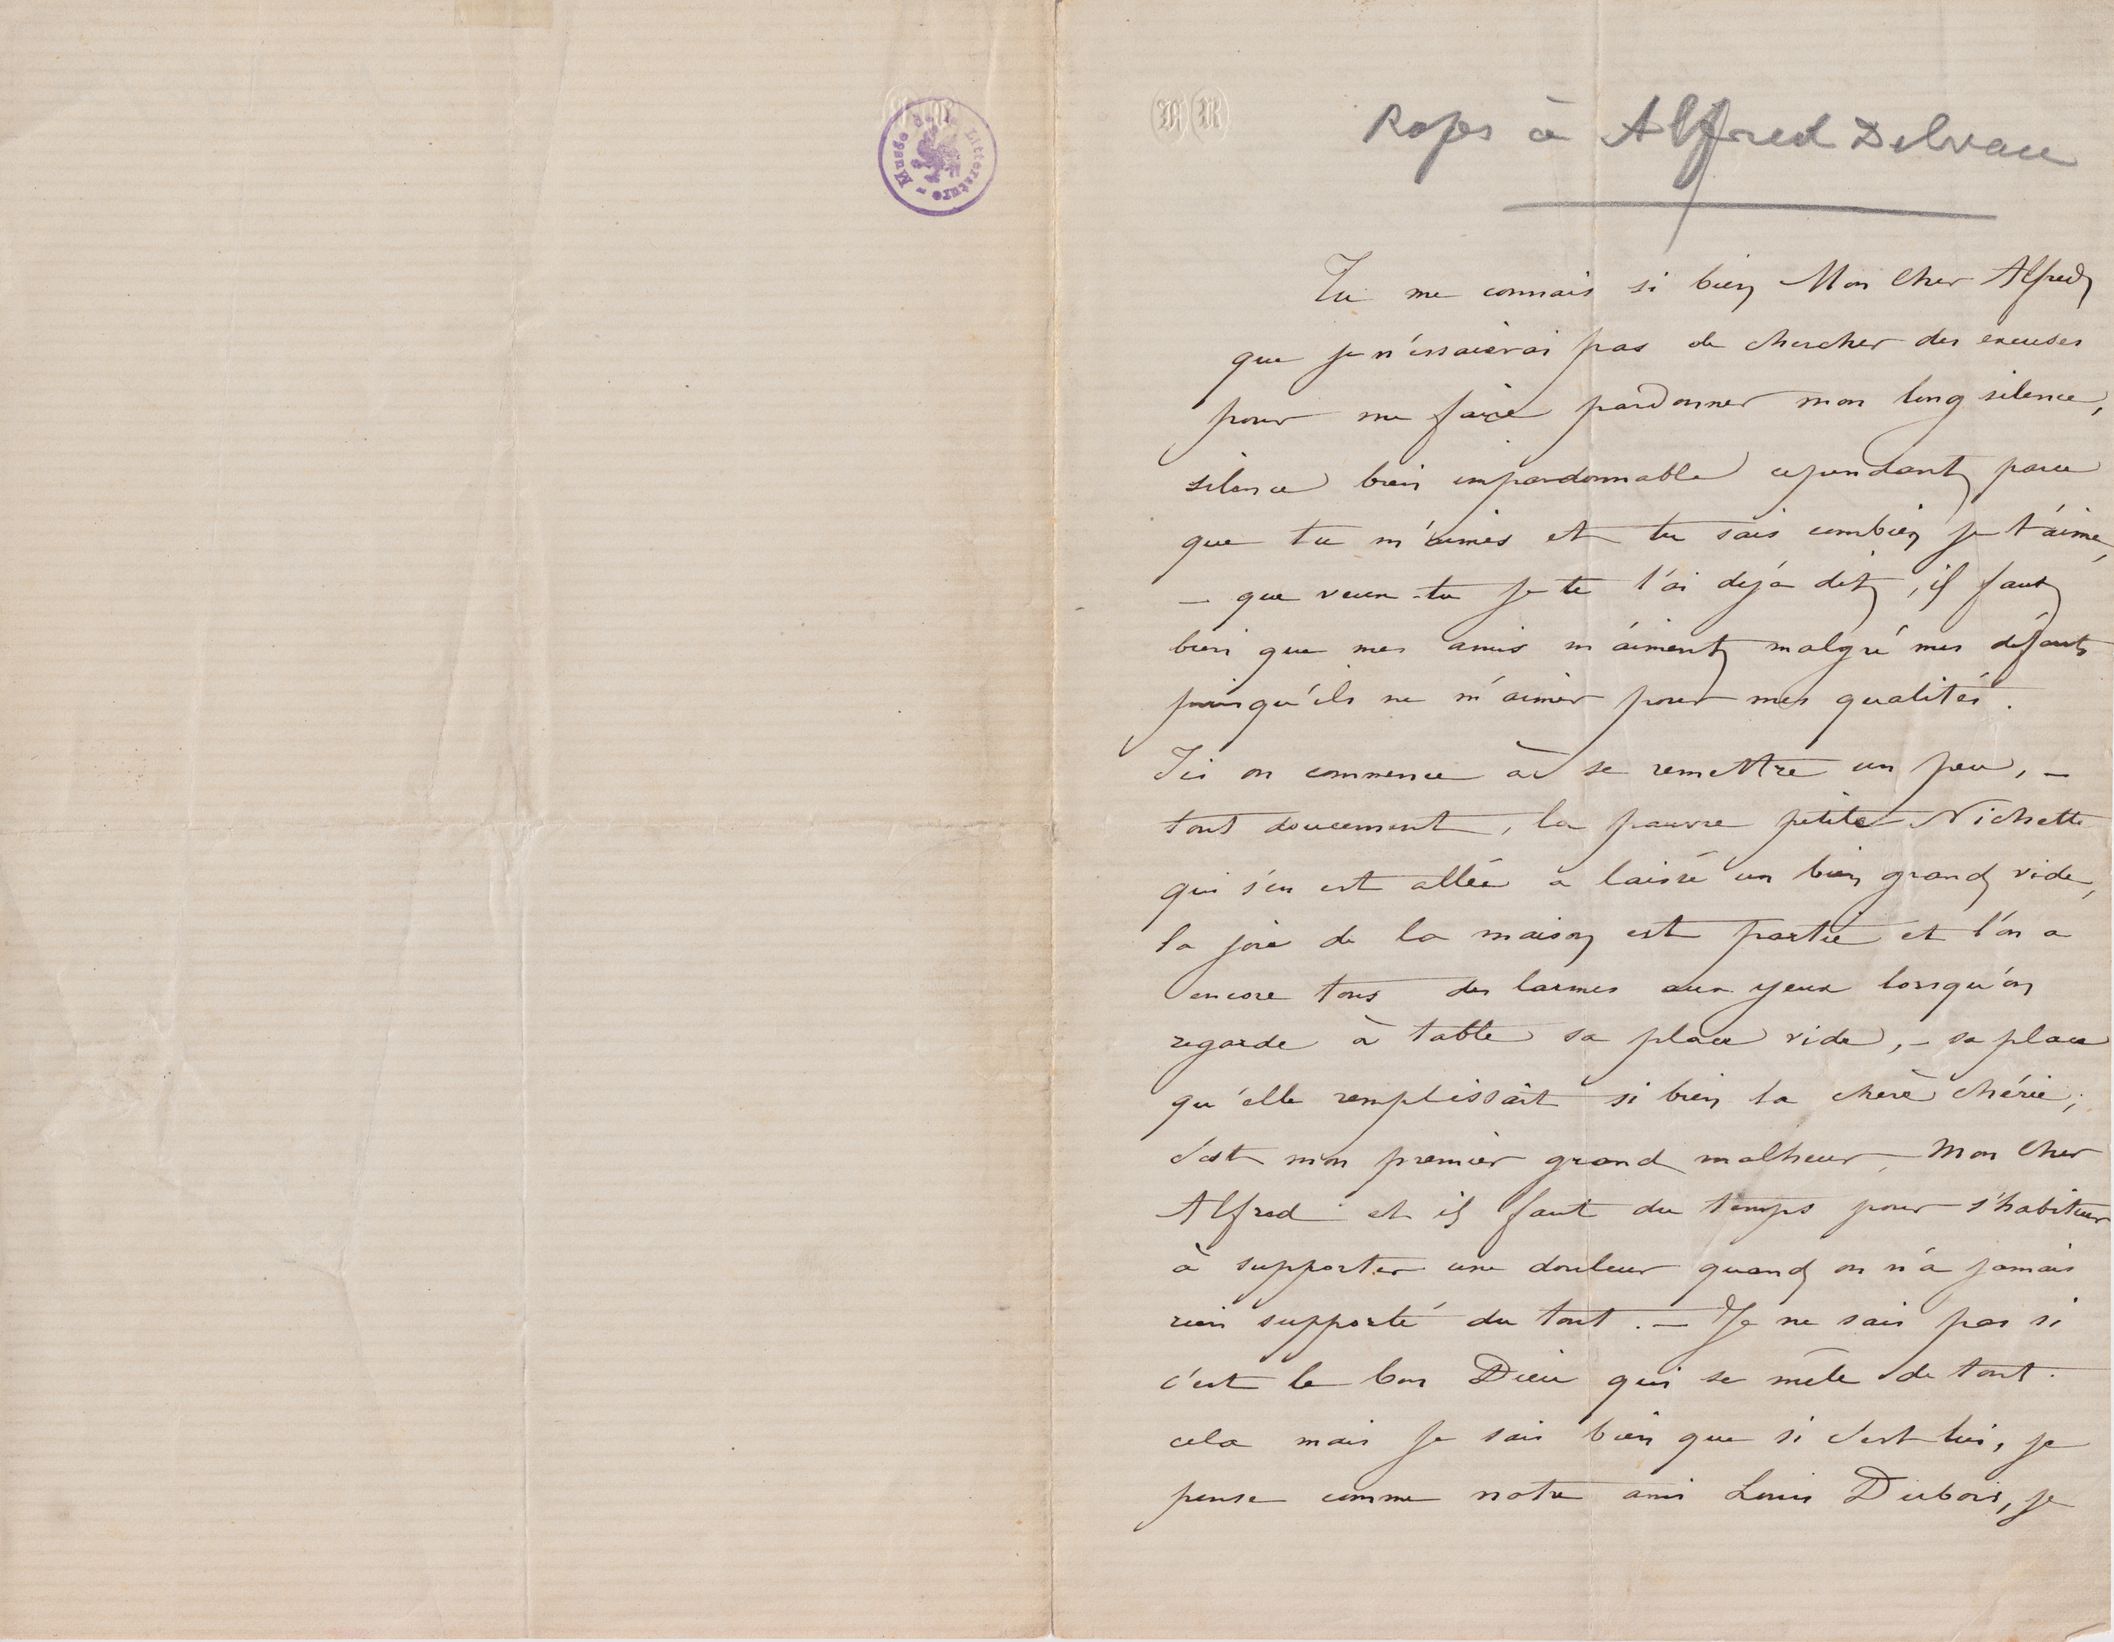 Musée de la Littérature -
Rops à Alfred Delvau
Tu me connais si bien Mon Cher Alfred
que je n'essaierai pas de chercher des excuses
pour me faire pardonner mon long silence,
silence bien impardonnable cependant parce
que tu m'aimes et tu sais combien je t'aime,
– que veux-tu je te l'ai déjà dit, il faut
bien que mes amis m'aiment malgré mes défauts
puisqu'ils ne m'aimer pour mes qualités.
Ici on commence à se remettre un peu, –
tout doucement, la pauvre petite Nichette
qui s'en est allée a laissé un bien grand vide,
la joie de la maison est partie et l'on a
encore tous des larmes aux yeux lorsqu'on
regarde à table sa place vide, – sa place
qu'elle remplissait si bien la chère chérie;
c'est mon premier grand malheur, Mon Cher
Alfred et il faut du temps pour s'habituer
à supporter une douleur quand on n'a jamais
rien supporté du tout. – Je ne sais pas si
c'est le bon Dieu qui se mêle de tout.
cela mais je sais bien que si c'est lui, je
pense comme notre ami Louis Dubois, je